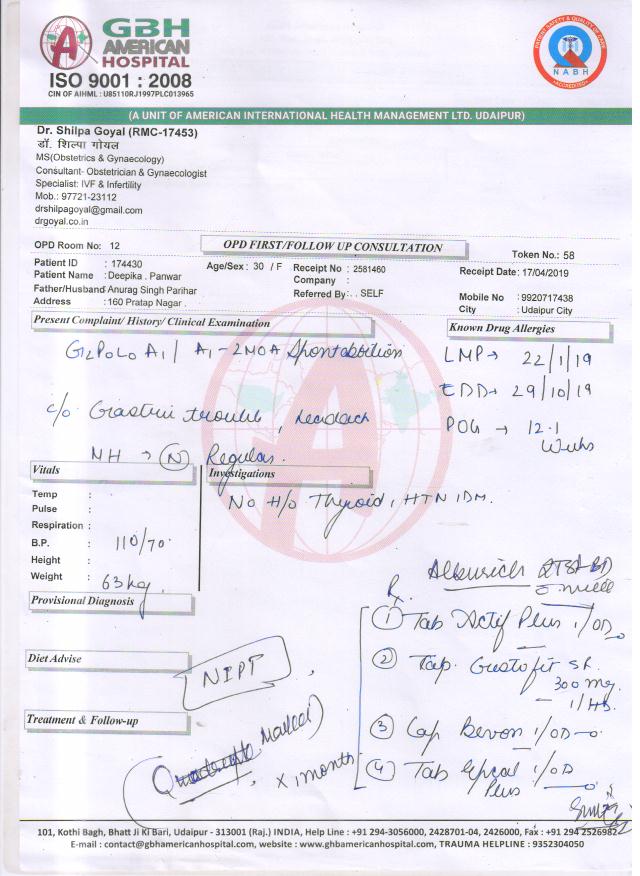 GBH
AMERICAN
HOSPITAL
ISO 9001 : 2008
CIN OF AIHML : U85110RJ1997PLC013965
PATIENT SAFETY & QUALITY OF CARE
NABH
ACCREDITED
(A UNIT OF AMERICAN INTERNATIONAL HEALTH MANAGEMENT LTD. UDAIPUR)
Dr. Shilpa Goyal (RMC-17453)
डॉ. शिल्पा गोयल
MS(Obstetrics & Gynaecology)
Consultant- Obstetrician & Gynaecologist
Specialist: IVF & Infertility
Mob.: 97721-23112
drshilpagoyal@gmail.com
drgoyal.co.in
OPD Room No: 12
OPD FIRST/FOLLOW UP CONSULTATION
Token No.: 58
Patient ID : 174430
Age/Sex : 30 / F
Receipt No : 2581460
Receipt Date: 17/04/2019
Patient Name : Deepika . Panwar
Company :
Father/Husband Anurag Singh Parihar
Referred By: . . SELF
Mobile No : 9920717438
Address : 160 Pratap Nagar .
City : Udaipur City
Present Complaint/ History/ Clinical Examination
Known Drug Allergies
G2P0L0A1 / A1-2MOA Spont abortion
LMP→ 22/1/19
EDD→ 29/10/19
c/o. Gastric trouble, headach
POG → 12.1
Weeks
MH → (N) Regular.
Vitals
Investigations
No H/o Thyroid, HTN, DM.
Temp :
Pulse :
Respiration :
B.P. : 110/70
Height :
Weight : 63kg
Provisional Diagnosis
Rx
① Tab Actif Plus 1/OD
② Tab. Gustofit SR
300 mg
– 1/HS
Diet Advise
NIPT
Treatment & Follow-up
③ Cap Bevon 1/OD
④ Tab 1/OD
Plus
x 1 month
101, Kothi Bagh, Bhatt Ji Ki Bari, Udaipur - 313001 (Raj.) INDIA, Help Line : +91 294-3056000, 2428701-04, 2426000, Fax : +91 294 2526982
E-mail : contact@gbhamericanhospital.com, website : www.gbhamericanhospital.com, TRAUMA HELPLINE : 9352304050